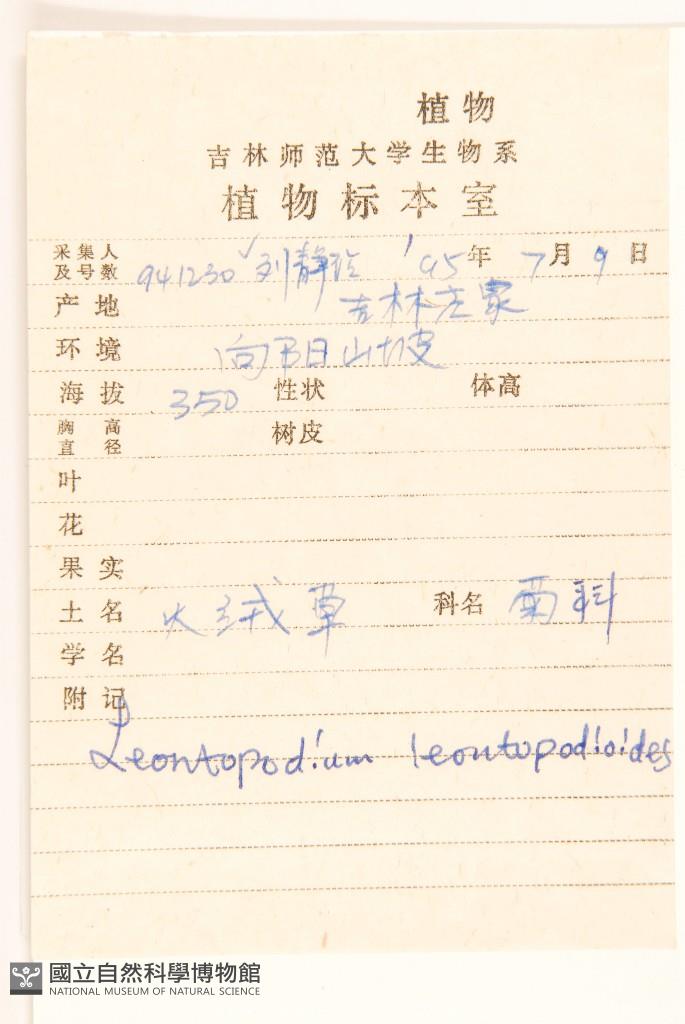 植物
吉林师范大学生物系
植物标本室
采集人及号数 941230 刘静玲 '95年7月9日
产地 吉林左家
环境 向阳山坡
海拔 350 性状 体高
胸高直径 树皮
叶
花
果实
土名 火绒草 科名 菊科
学名
附记
Leontopodium leontopodioides
國立自然科學博物館
NATIONAL MUSEUM OF NATURAL SCIENCE